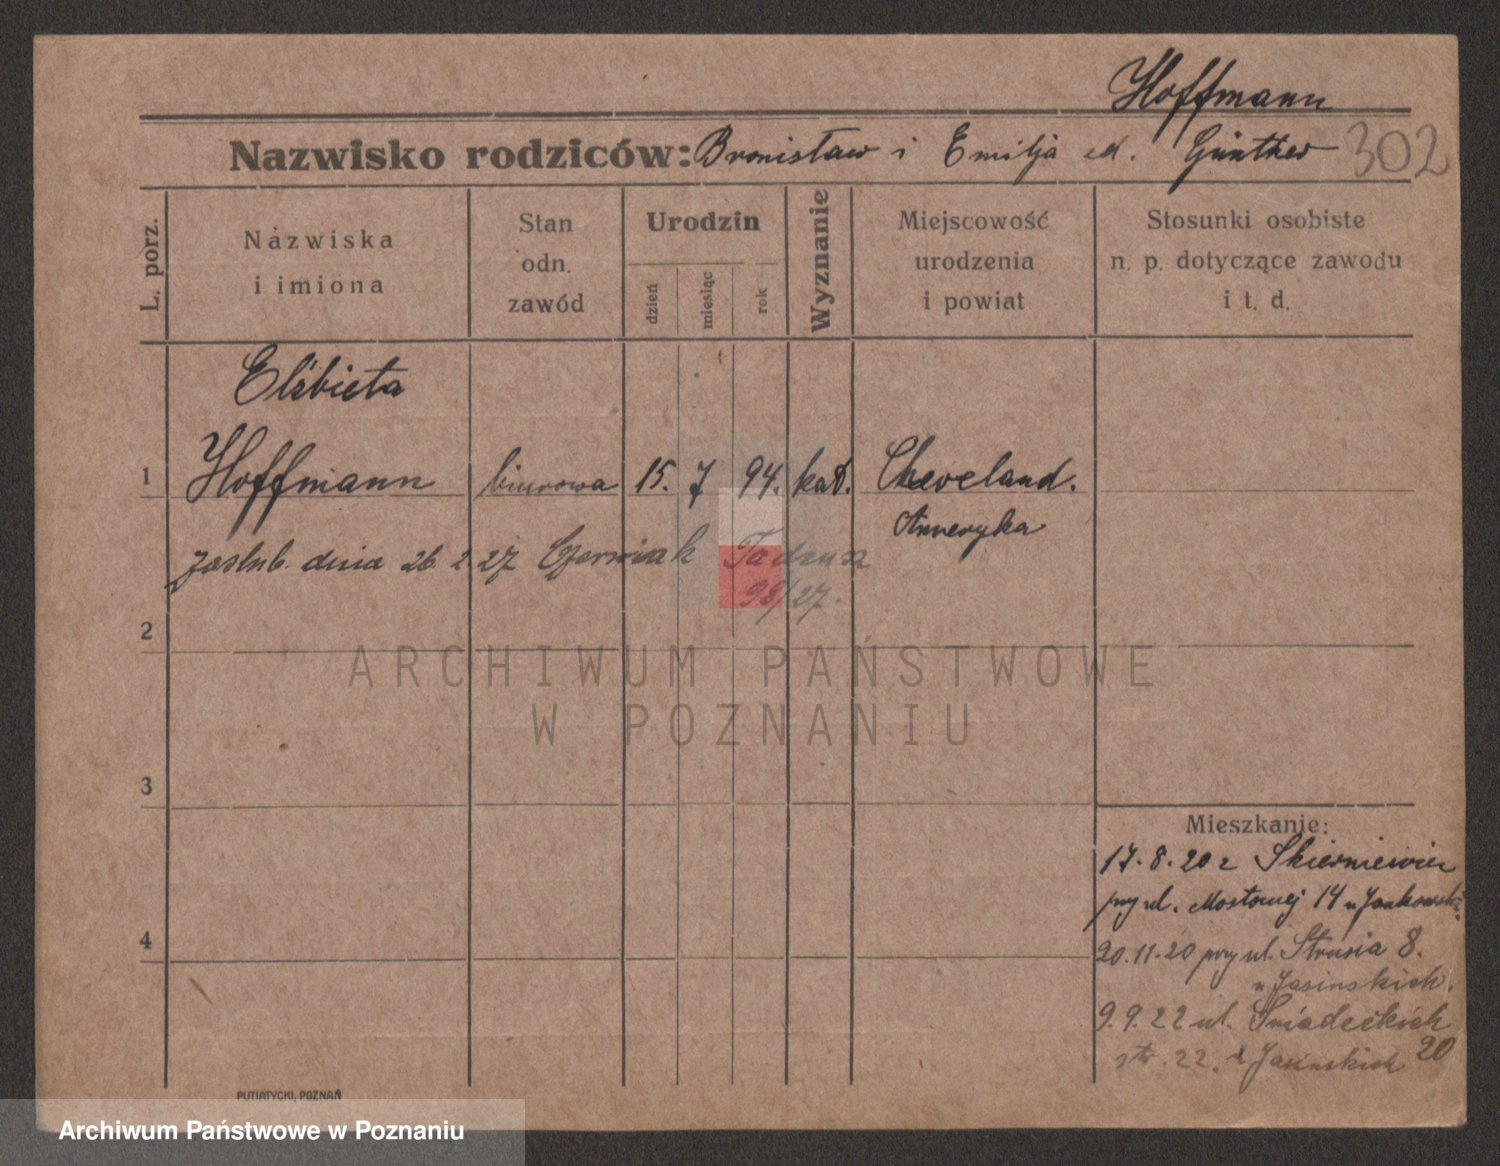 Hoffmann
Nazwisko rodziców: Bronisław i Emilja Günther 302
L. porz.
Nazwiska
i imiona
Stan
odn.
zawód
Urodzin
dzień
miesiąc
rok
Wyznanie
Miejscowość
urodzenia
i powiat
Stosunki osobiste
n. p. dotyczące zawodu
i t. d.
Elżbieta
1 Hoffmann biurowa 15. 7 94. kat. Cleveland.
Ameryka
zaślub. dnia 26. 2 27 Czerwiak Tadeusz
98/27.
2
ARCHIWUM PAŃSTWOWE
W POZNANIU
3
Mieszkanie:
17.8.20 z Skierniewic
przy ul. Mostowej 14 u Jankowski
4
20.11.20 przy ul. Strusia 8.
u Jasinskich.
9.9.22 ul. Sniadeckich
20
22. Jasinskich
PUTIATYCKI, POZNAŃ
Archiwum Państwowe w Poznaniu